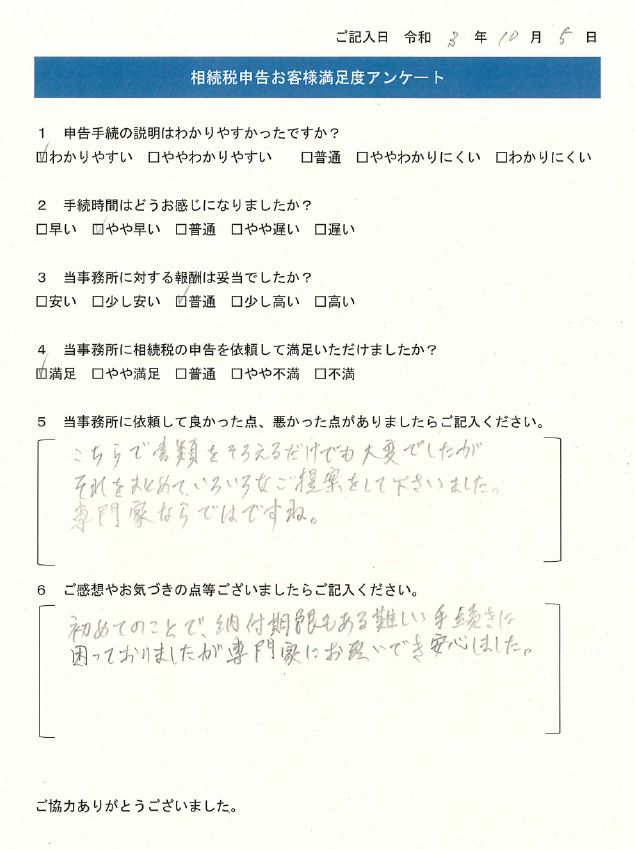 ご記入日 令和 3 年 10 月 5 日
相続税申告お客様満足度アンケート
1 申告手続の説明はわかりやすかったですか?
☑わかりやすい □ややわかりやすい □普通 □ややわかりにくい □わかりにくい
2 手続時間はどうお感じになりましたか?
□早い ☑やや早い □普通 □やや遅い □遅い
3 当事務所に対する報酬は妥当でしたか?
□安い □少し安い ☑普通 □少し高い □高い
4 当事務所に相続税の申告を依頼して満足いただけましたか?
☑満足 □やや満足 □普通 □やや不満 □不満
5 当事務所に依頼して良かった点、悪かった点がありましたらご記入ください。
こちらで書類をそろえるだけでも大変でしたが
それをまとめていろいろなご提案をして下さいました。
専門家ならではですね。
6 ご感想やお気づきの点等ございましたらご記入ください。
初めてのことで、納付期限もある難しい手続きに
困っておりましたが専門家にお願いでき安心しました。
ご協力ありがとうございました。